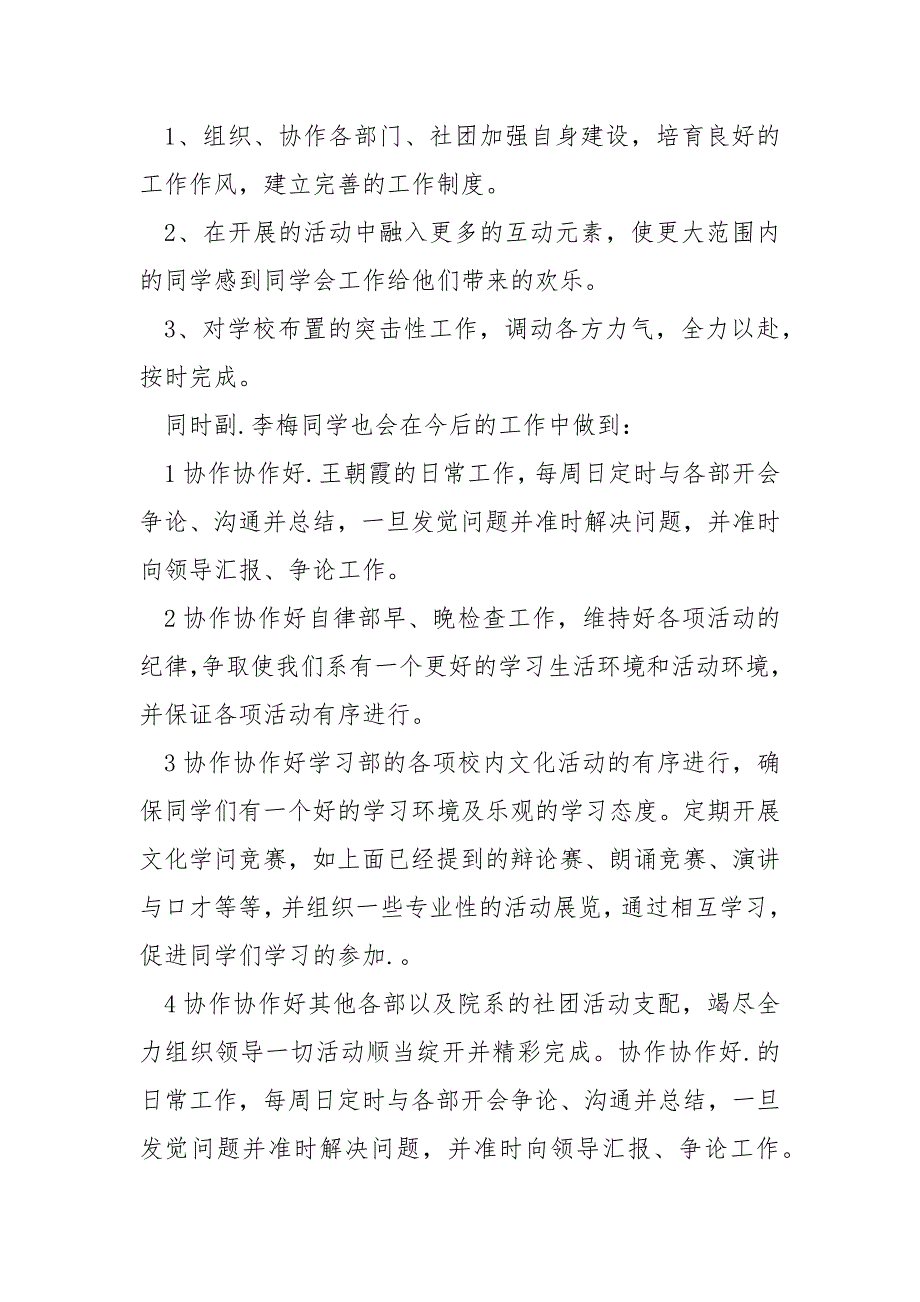 1、组织、协作各部门、社团加强自身建设，培育良好的
工作作风，建立完善的工作制度。
2、在开展的活动中融入更多的互动元素，使更大范围内
的同学感到同学会工作给他们带来的欢乐。
3、对学校布置的突击性工作，调动各方力气，全力以赴，
按时完成。
同时副.李梅同学也会在今后的工作中做到：
1 协作协作好.王朝霞的日常工作，每周日定时与各部开会
争论、沟通并总结，一旦发觉问题并准时解决问题，并准时
向领导汇报、争论工作。
2 协作协作好自律部早、晚检查工作，维持好各项活动的
纪律，争取使我们系有一个更好的学习生活环境和活动环境，
并保证各项活动有序进行。
3 协作协作好学习部的各项校内文化活动的有序进行，确
保同学们有一个好的学习环境及乐观的学习态度。定期开展
文化学问竞赛，如上面已经提到的辩论赛、朗诵竞赛、演讲
与口才等等，并组织一些专业性的活动展览，通过相互学习，
促进同学们学习的参加.。
4 协作协作好其他各部以及院系的社团活动支配，竭尽全
力组织领导一切活动顺当绽开并精彩完成。协作协作好.的
日常工作，每周日定时与各部开会争论、沟通并总结，一旦
发觉问题并准时解决问题，并准时向领导汇报、争论工作。